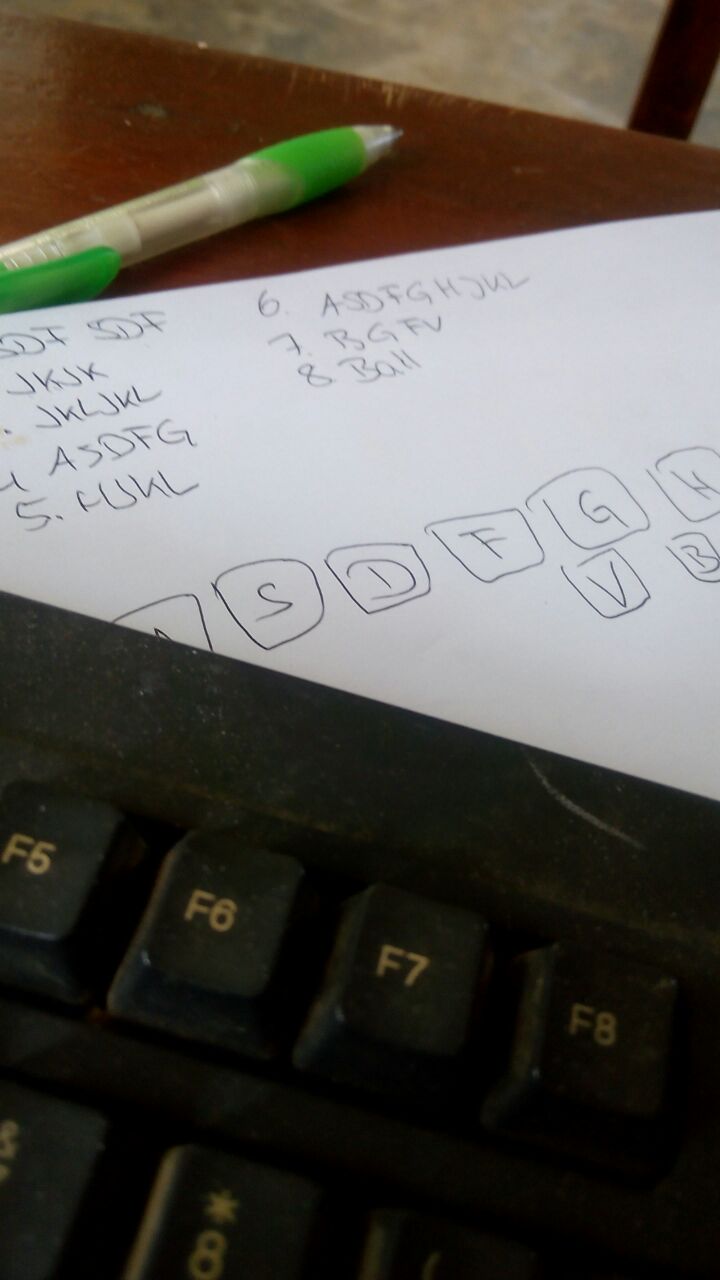 SDF SDF
JKJK
JKLJKL
4 ASDFG
5. HJKL
6. ASDFGHJKL
7. BGFV
8 Ball
A S D F G H
V B
F5 F6 F7 F8
&
7
*
8
(